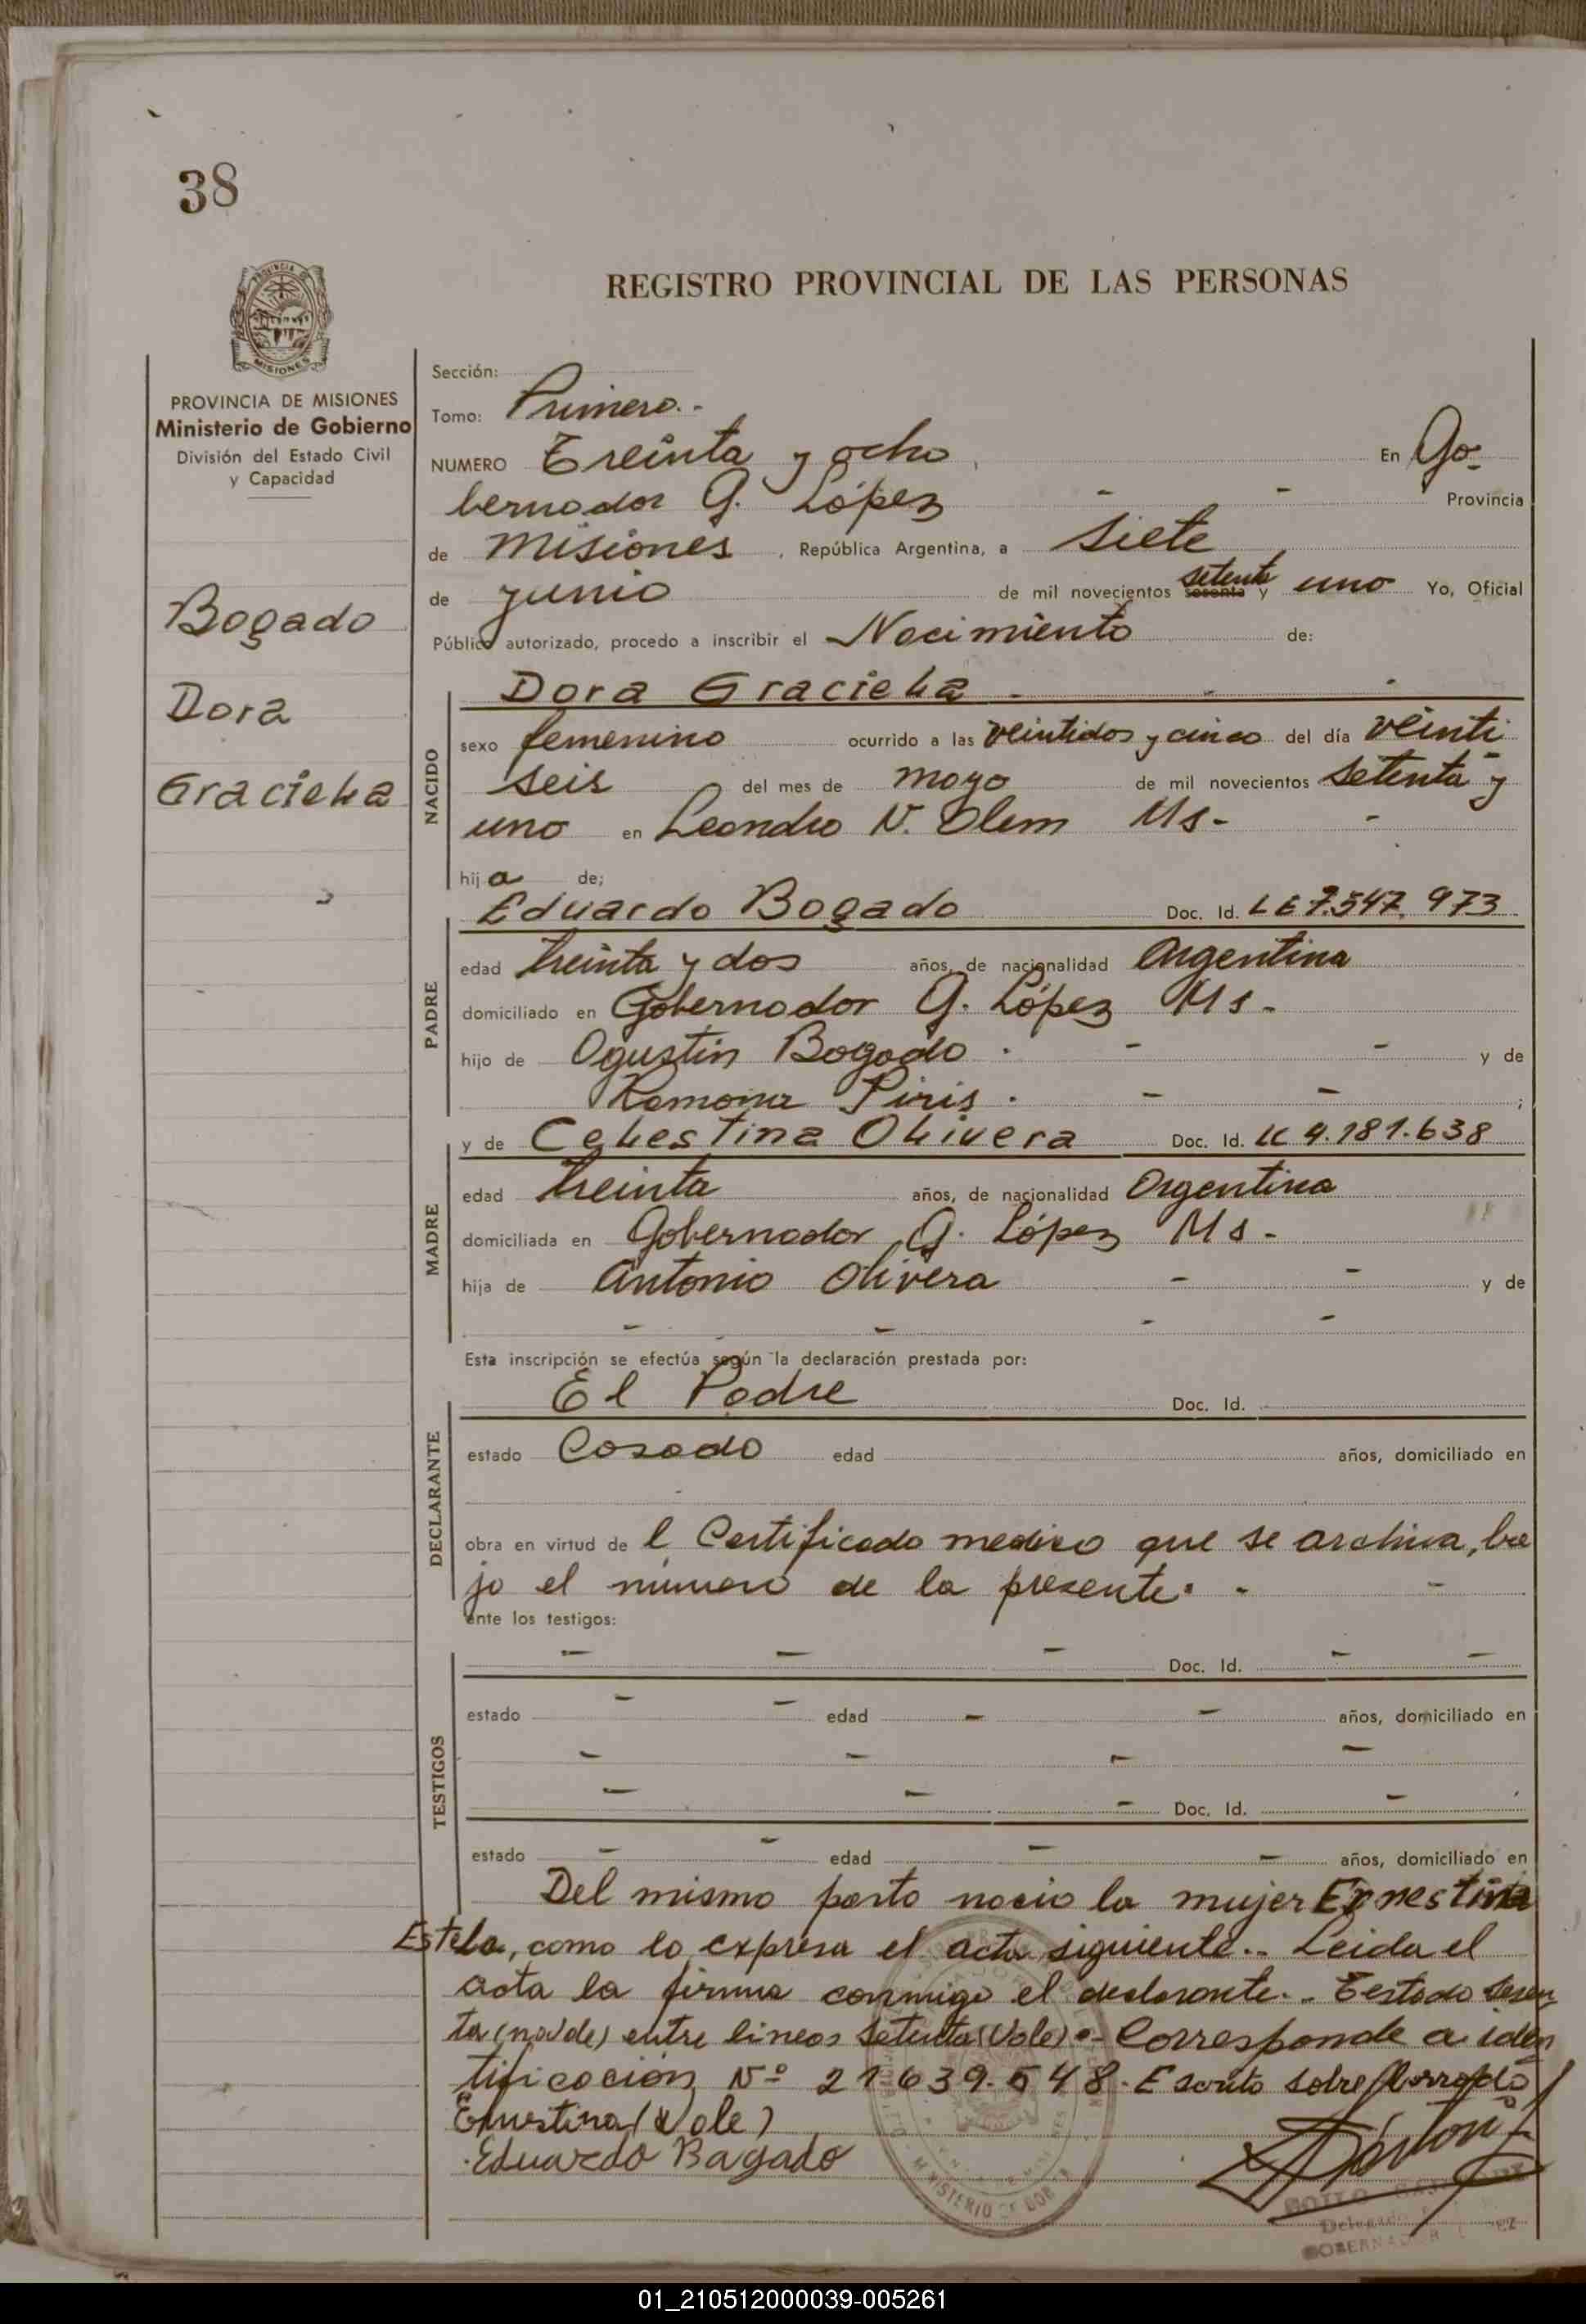 38
REGISTRO PROVINCIAL DE LAS PERSONAS
PROVINCIA DE
MISIONES
PROVINCIA DE MISIONES
Ministerio de Gobierno
División del Estado Civil
y Capacidad
Bogado
Dora
Graciela
Sección:
Tomo: Primero.-
NUMERO Treinta y ocho, En Go-
bernador G. López - - Provincia
de Misiones, República Argentina, a siete
de junio de mil novecientos setenta sesenta y uno Yo, Oficial
Público autorizado, procedo a inscribir el Nacimiento de:
Dora Graciela - - -
NACIDO
sexo femenino ocurrido a las veintidos y cinco del día veinti-
seis del mes de mayo de mil novecientos setenta y
uno en Leandro N. Alem Ms- -
hija de;
Eduardo Bogado Doc. Id. LE 7.547.973
PADRE
edad treinta y dos años, de nacionalidad Argentina
domiciliado en Gobernador G. López Ms-
hijo de Agustin Bogado - - - y de
Ramona Piris - - - ;
y de Celestina Olivera Doc. Id. LC 4.181.638
MADRE
edad treinta años, de nacionalidad Argentina
domiciliada en Gobernador G. López Ms-
hija de Antonio Olivera - - y de
- - - -
Esta inscripción se efectúa según la declaración prestada por:
El Padre Doc. Id.
DECLARANTE
estado Casado edad años, domiciliado en
obra en virtud de l Certificado medico que se archiva, ba
jo el número de la presente. - -
ante los testigos:
- - - Doc. Id. - -
TESTIGOS
estado - - edad - - años, domiciliado en
- - - -
- - - Doc. Id. -
estado - - edad - - años, domiciliado en
Del mismo parto nacio la mujer Ernestina
Estela, como lo expresa el acta siguiente.- Leida el
acta la firma conmigo el declarante.- Testado sesen
ta (no vale) entre lineas setenta (Vale).- Corresponde a iden
tificación Nº 21.639.548. Escrito sobre borrado
Ernestina (Vale)
Eduardo Bagado
MINISTERIO DE GOB
Delegado
GOBERNADOR LOPEZ
01_210512000039-005261